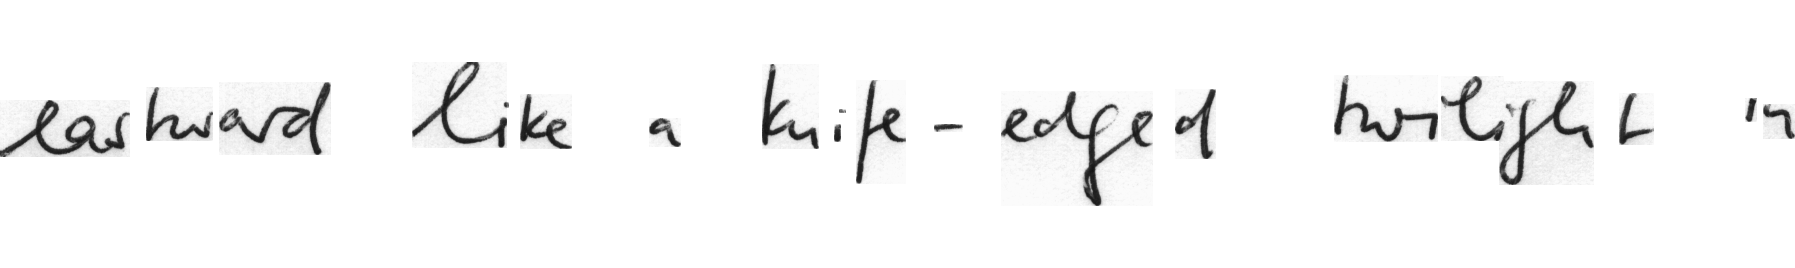 eastward like a knife-edged twilight in